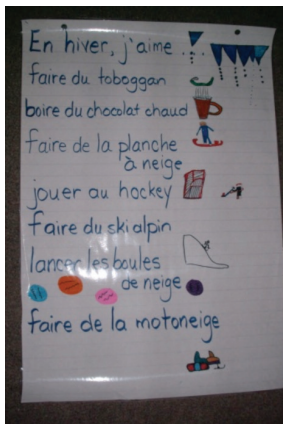 En hiver, j'aime...
faire du toboggan
boire du chocolat chaud
faire de la planche
à neige
jouer au hockey
faire du ski alpin
lancer les boules
de neige
faire de la motoneige